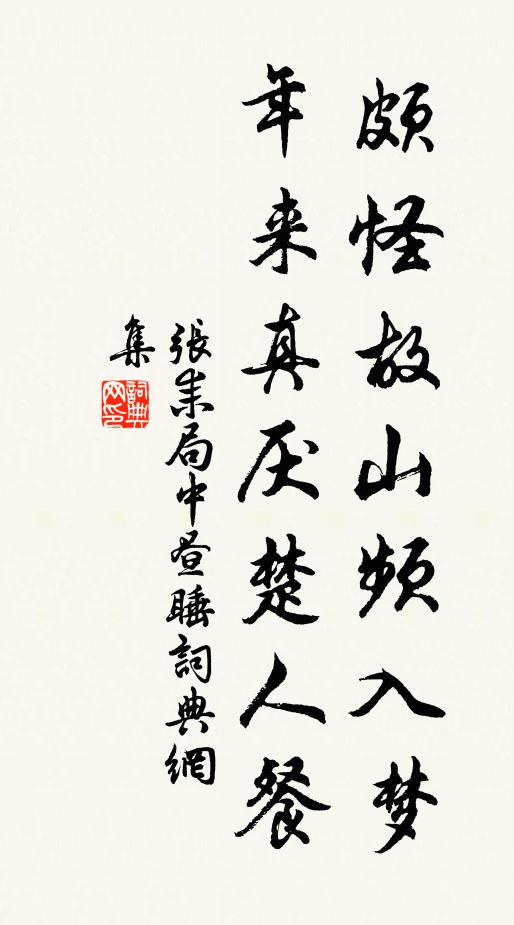 颇怪故山频入梦
年来真厌楚人餐
張耒局中昼睡詞典網
集
詞典
网印